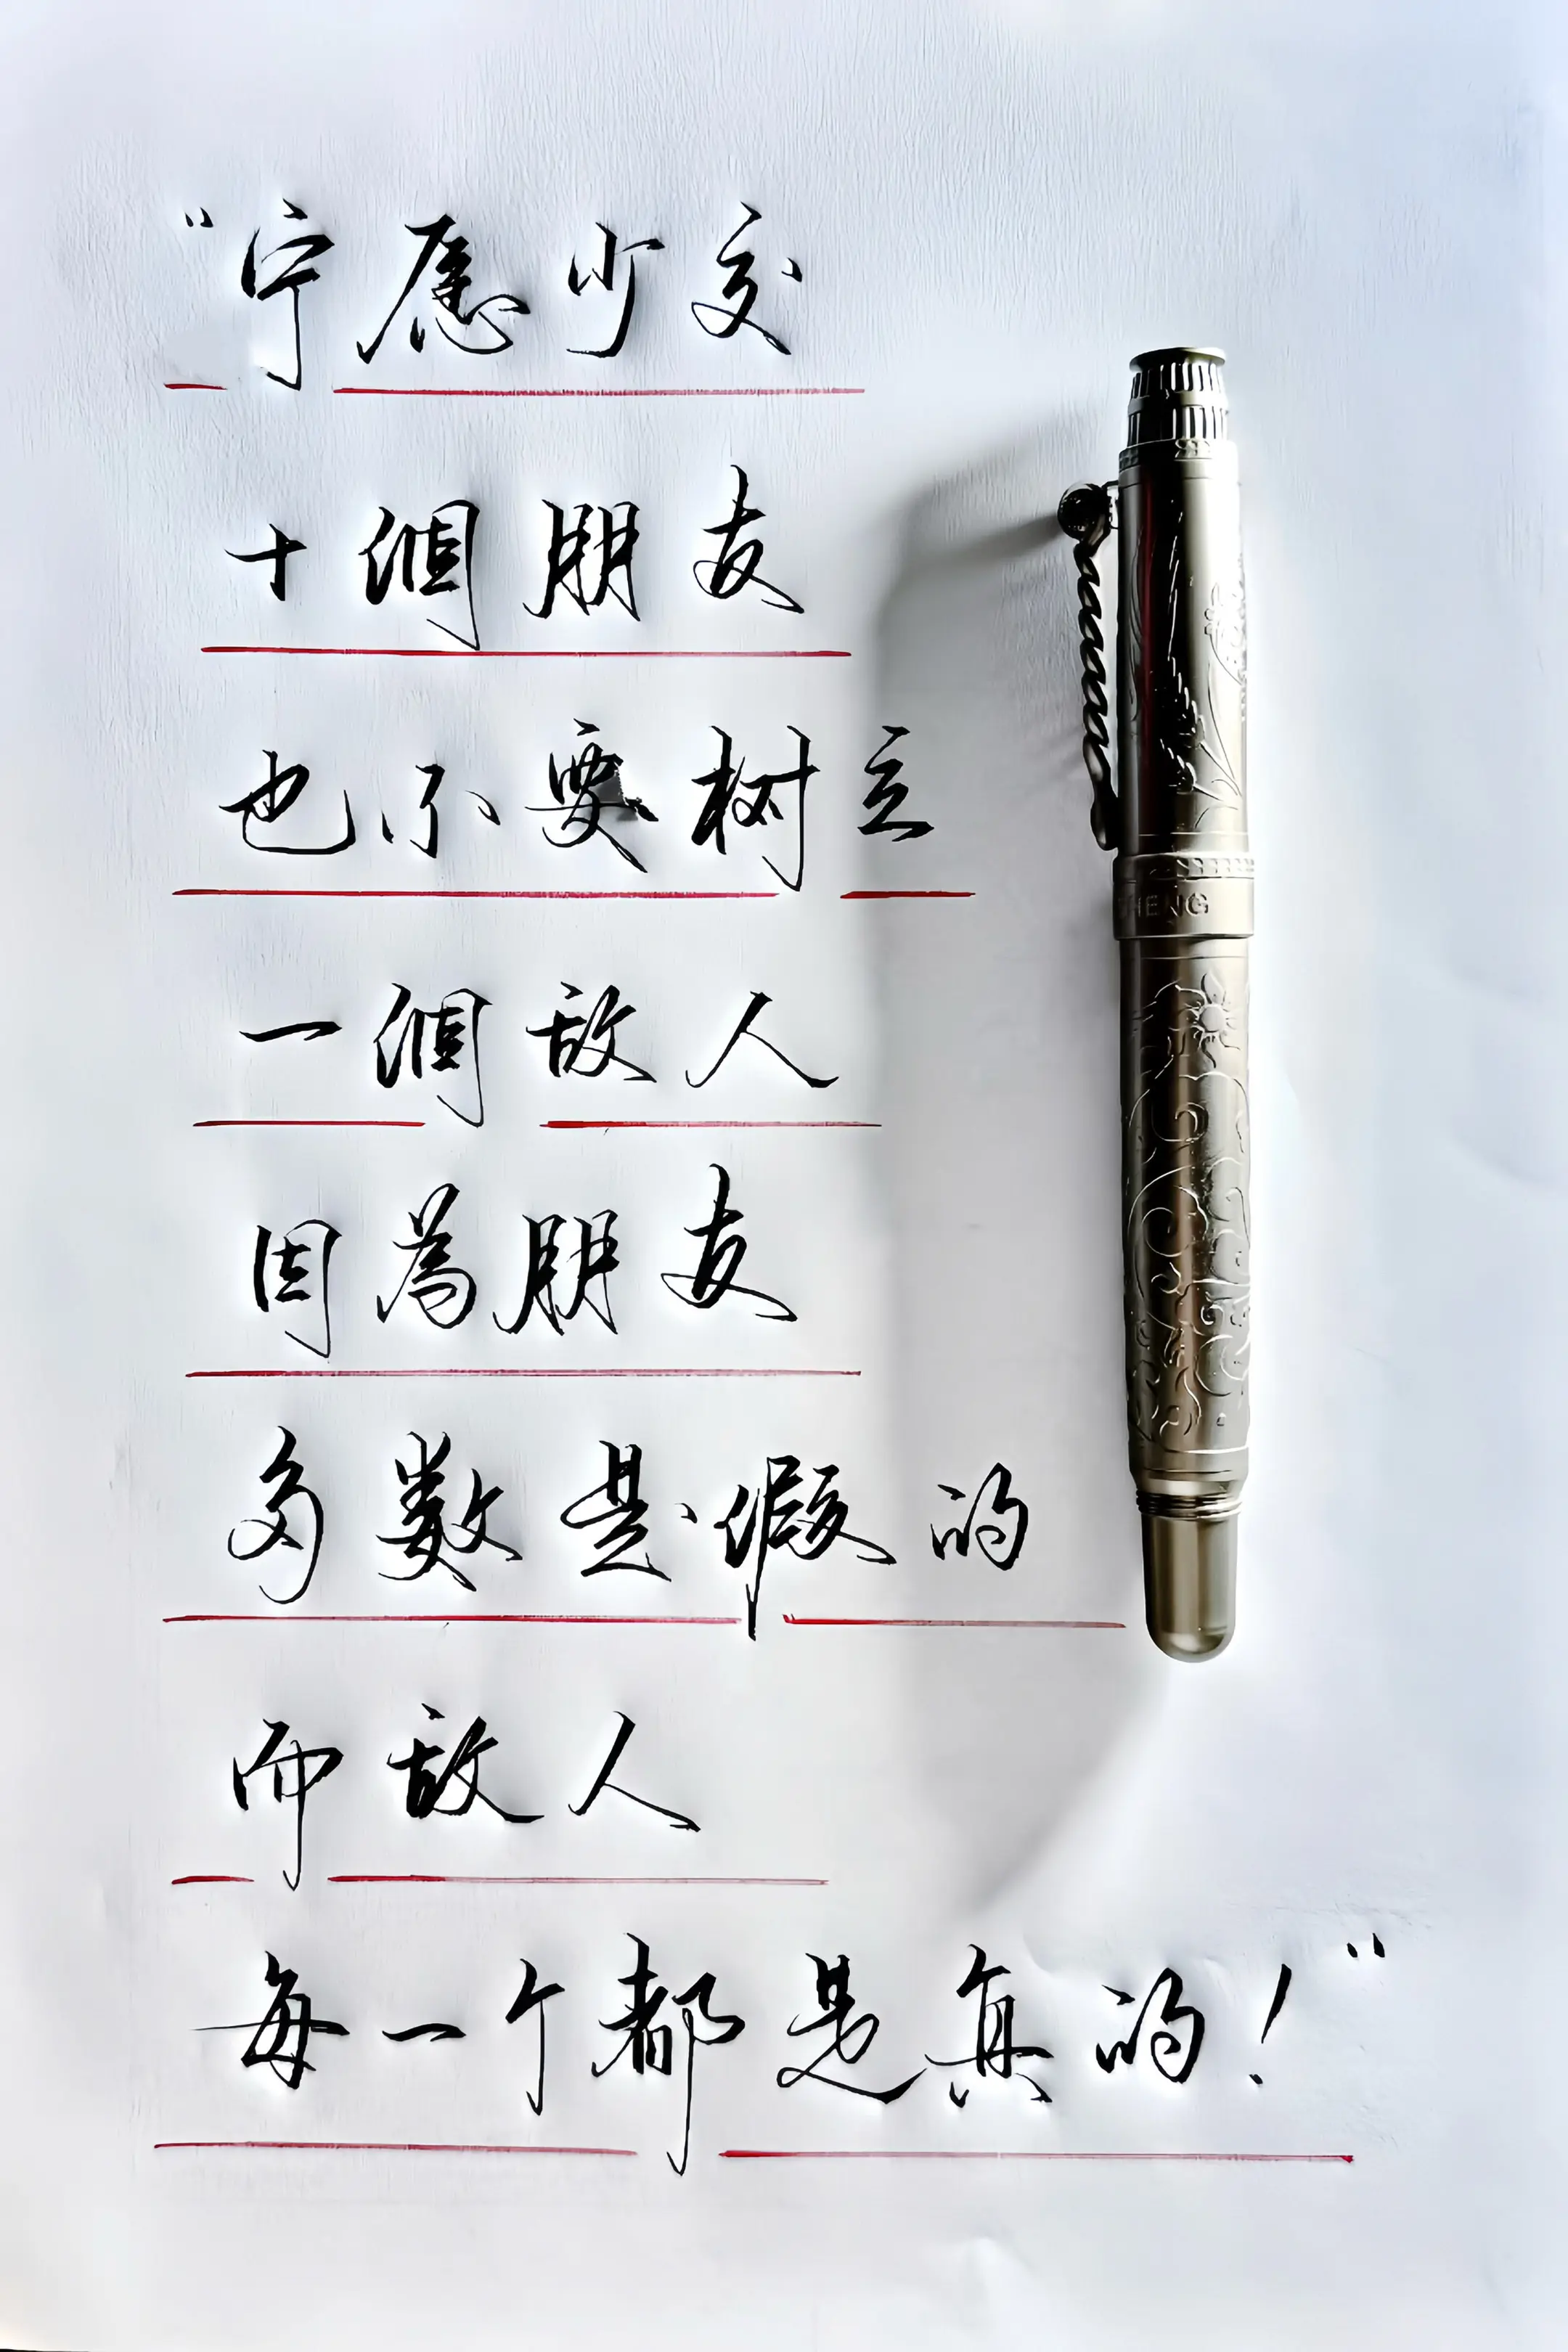 “宁愿少交
十個朋友
也不要树立
一個敌人
因為朋友
多数是假的
而敌人
每一个都是真的！”
HENG